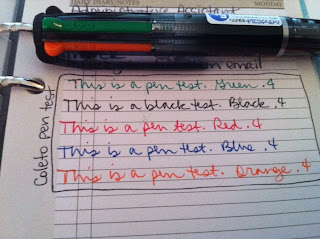 DAILY DIARY/NOTES MONDAY
Administrative Assistant
email
Coleto pen test
This is a pen test. Green .4
This is a black test. Black .4
This is a pen test. Red .4
This is a pen test. Blue .4
This is a pen test. Orange .4